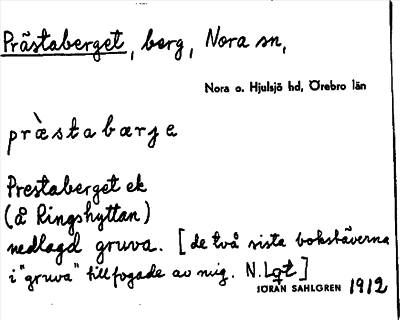 Prästaberget, berg, Nora sn,
Nora o. Hjulsjö hd, Örebro län
præ̀stabærje
Prestaberget ek
(å Ringshyttan)
nedlagd gruva. [de två sista bokstäverna
i "gruva" tillfogade av mig. N. Lqt]
JÖRAN SAHLGREN 1912